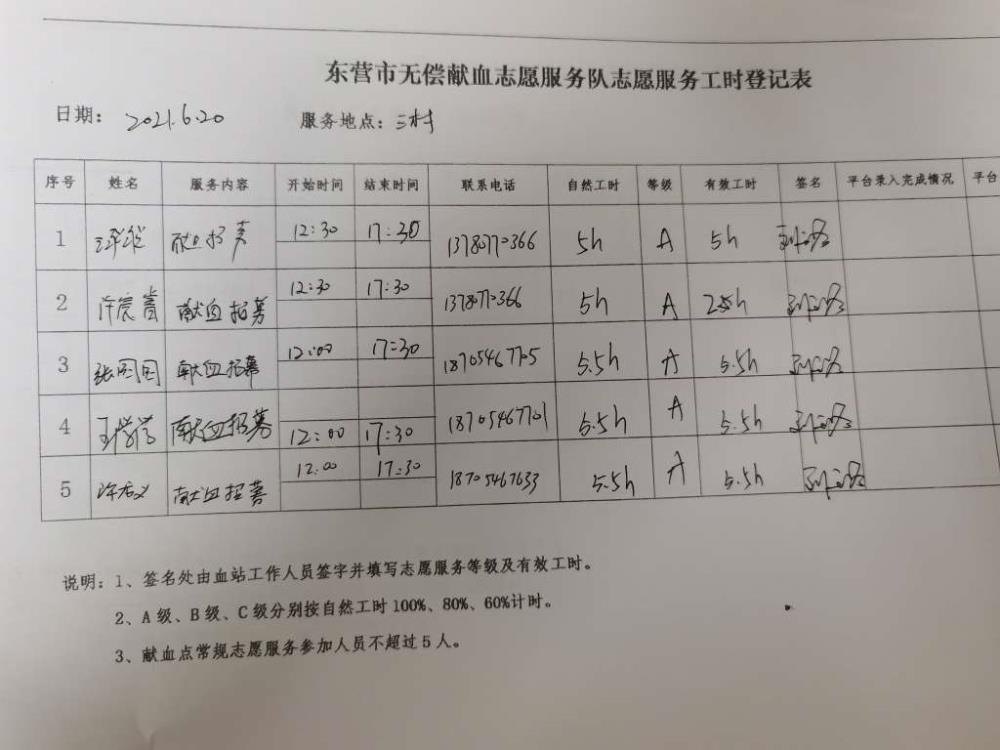 东营市无偿献血志愿服务队志愿服务工时登记表
日期： 2021.6.20 服务地点：三村
序号 姓名 服务内容 开始时间 结束时间 联系电话 自然工时 等级 有效工时 签名 平台录入完成情况 平台
1 献血招募 12:30 17:30 13780770366 5h A 5h
2 献血招募 12:30 17:30 5h A
3 张园园 献血招募 12:00 17:30 18705467705 5.5h A 5.5h
4 献血招募 12:00 17:30 18705467701 5.5h A 5.5h
5 献血招募 12:00 17:30 18705467633 5.5h A 5.5h
说明：1、签名处由血站工作人员签字并填写志愿服务等级及有效工时。
2、A 级、B 级、C 级分别按自然工时 100%、80%、60%计时。
3、献血点常规志愿服务参加人员不超过 5 人。